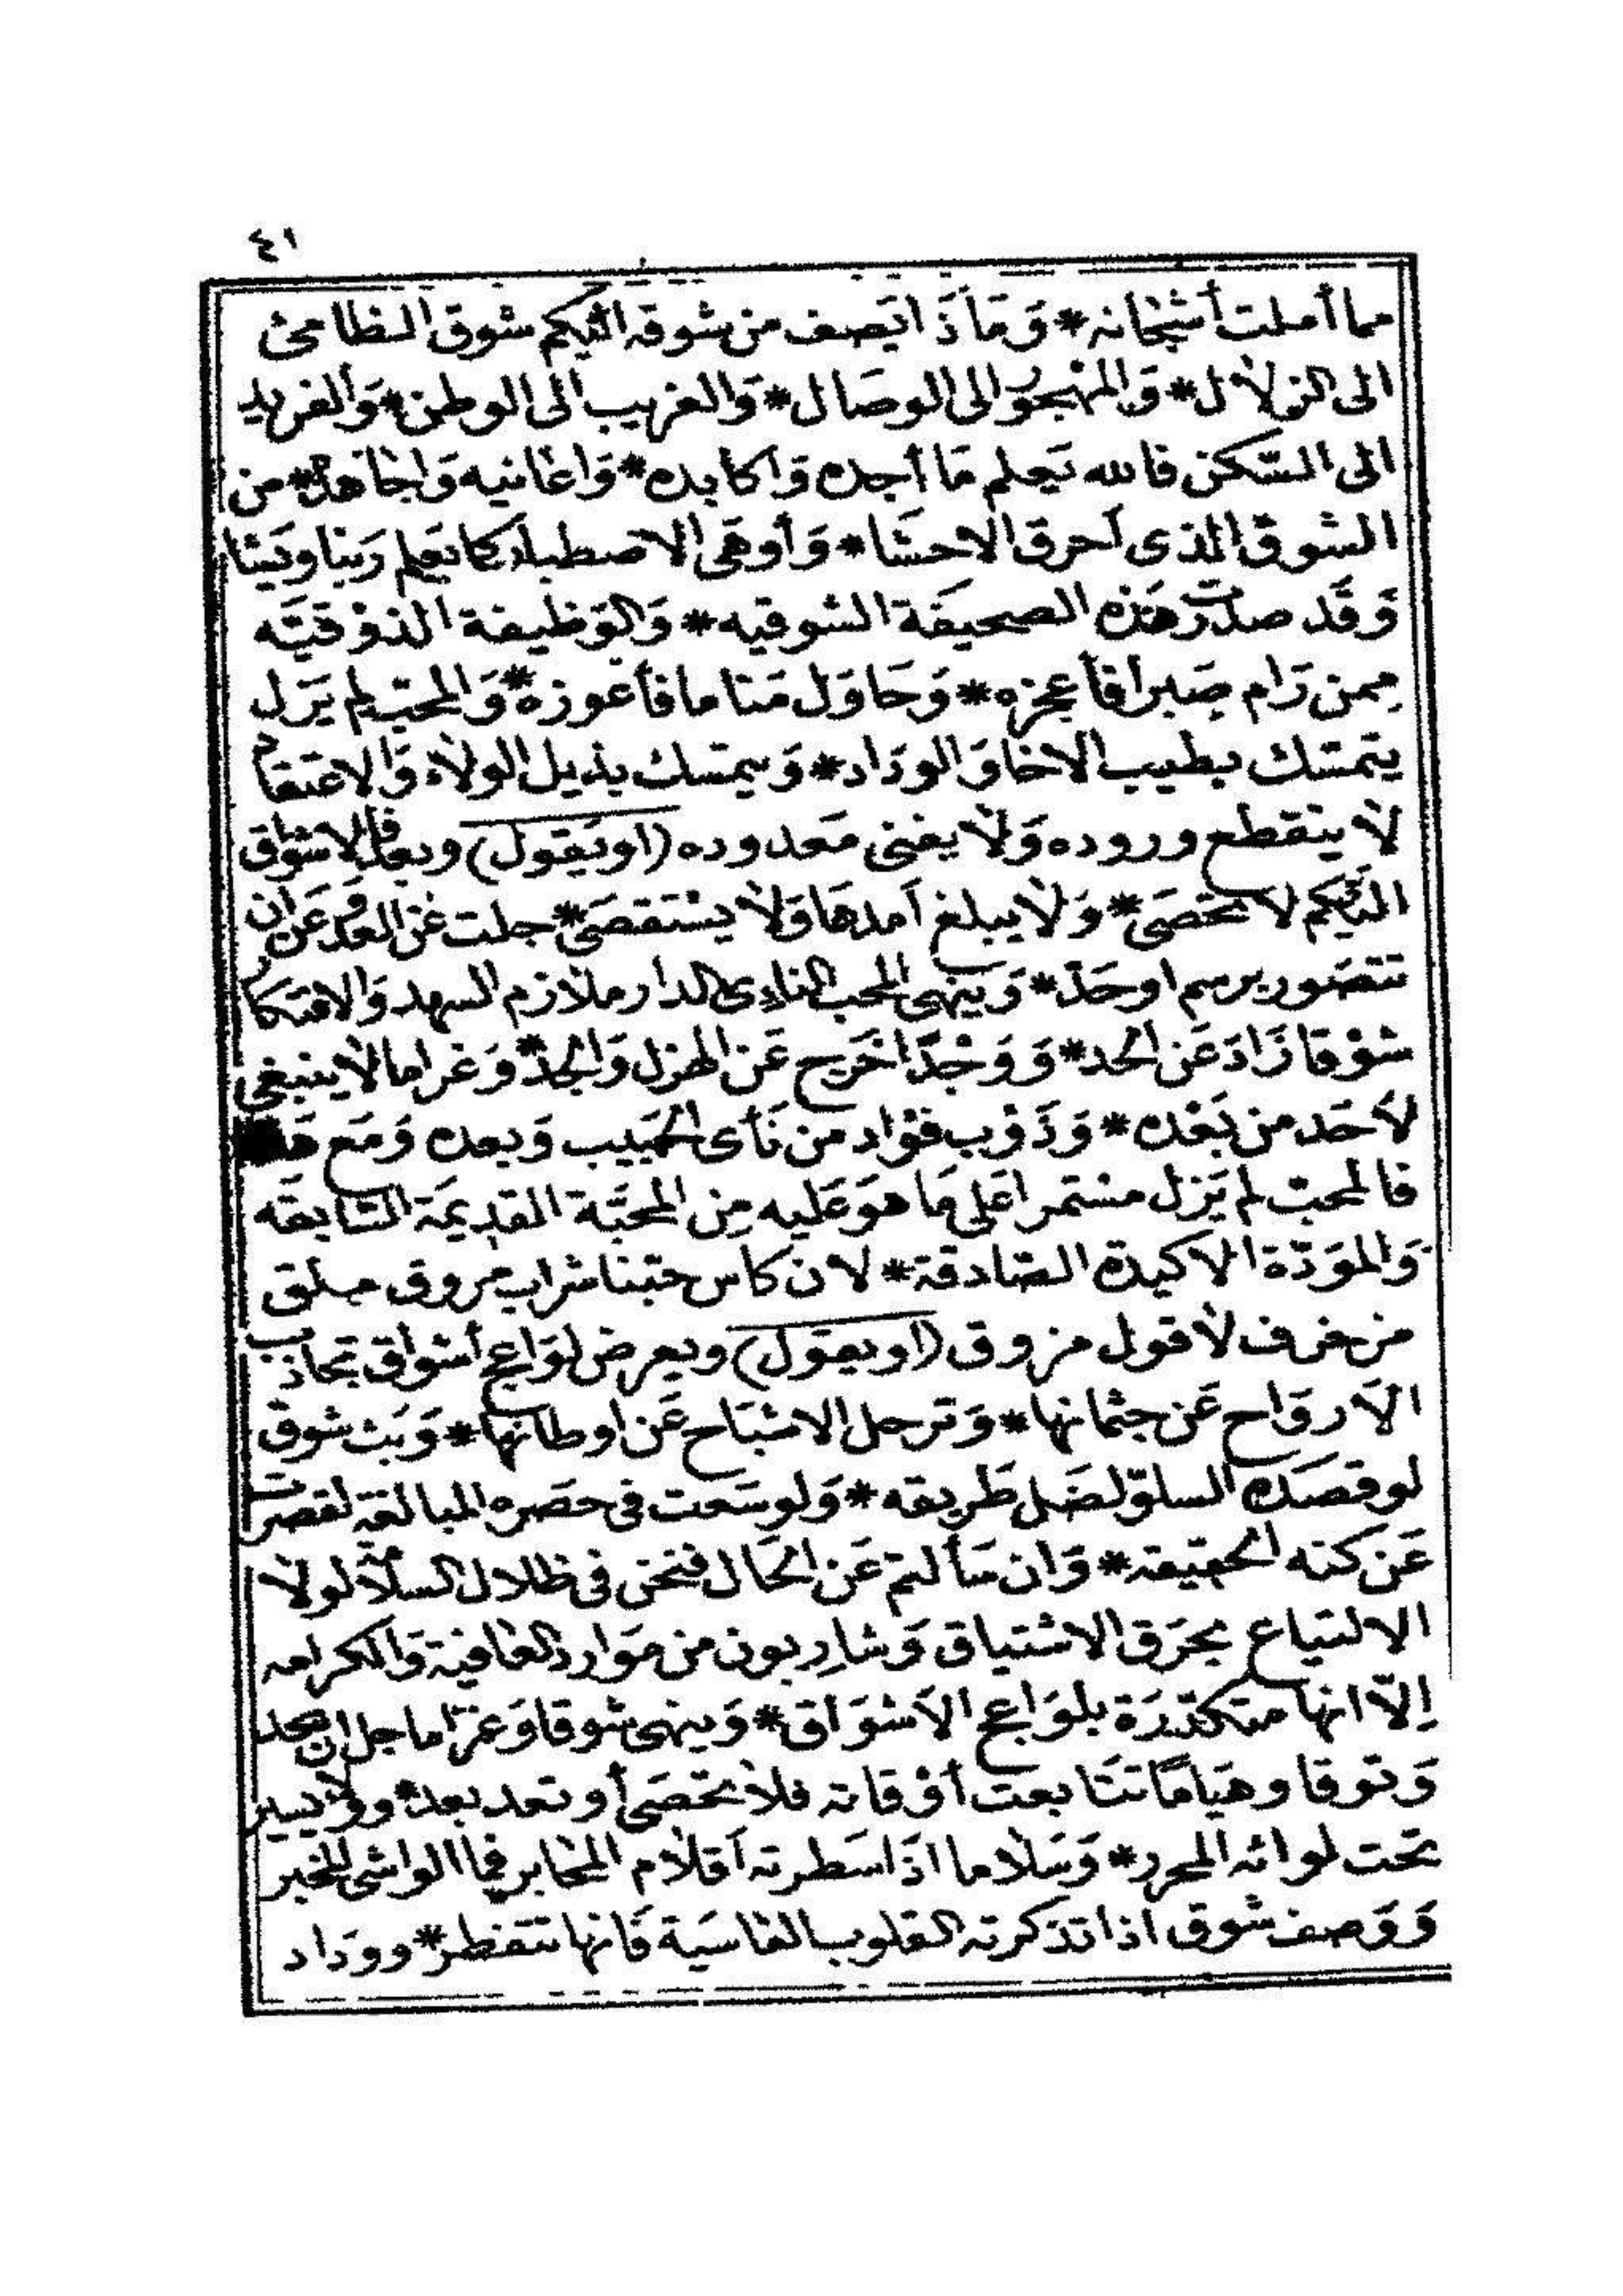 ٤١
مما أملت أشجانه * وَمَاذَا يَصف من شوقه اليكم شوق الظامئ
الى الزلال * وَالمهجور الى الوصَال * وَالغريب الى الوطن * وَالفريد
الى السّكن فالله يَعلم مَا أجده وَاكابده * وَاعانيه وَاجاهده * من
الشوق الذى أحرق الاحشَا * وَأوهَى الاصطبار كما يَعلم رَبنا وَيَشا
وَقَد صدرَت هَذه الصحيفَة الشوقيه * وَالوَظيفة الذوْقيَّه
مِمن رَام صَبرا فأعجزه * وَحَاوَل مَناما فأعوزه * وَالمحبّ لم يَزل
يتمسّك بطيب الاخا وَالودَاد * وَيمتسك بذيل الولَاء وَالاعتقاد
لَا ينقطع وروده وَلَا يفنى مَعدوده (او يَقول) وبعد فالاشواق
اليكم لا تحصَى * وَلَا يبلغ أمدهَا وَلَا يستقصَى * جلت عَن العد وَعَن ان
تتصَور برسم اوحَدّ * وَينهى المحب النادى الدار ملازم السهد وَالافتكار
شوْقا زَادَ عَن الحد * وَوَجْدًا خَرج عَن الهزل وَالجدّ * وَغراما لَا ينبغى
لأحَد من بَعْده * وَذَوْب فؤاد من نَأى الحَبيب وَبعده وَمَع هَذا
فالمحبّ لم يَزل مستمرا عَلى مَا هوَ عَليه مِن المحَبَّة القدِيمَة السَّابقَه
وَالموَدّة الاكيدة الصَّادقة * لان كاس حبّنا شراب مروق ملق
من خزف لَا قول مزوق (او يقول) ويعرض لوَاعج أشواق تجاذب
الأروَاح عَن جثمانها * وَترحل الاشبَاح عَن اوطانها * وَبَث شوق
لو قصَده السلوّ لضَل طَريقه * وَلو سَعت فى حصَره المبالغة لقصرت
عَن كنه الحقيقة * وَان سَألتم عَن الحَال فنحن فى ظلال السلَا لولَا
الالتياع بحرَق الاشتياق وَشارِبون من مَوارد العَافية وَالكرامه
إلّا انها متكدّرَة بلوَاعج الأشوَاق * وَينهى شوقا وَغرَاما جل ان يحد
وَتوقا وهيَامًا تتَابعت أوْقاته فلَا تحصَى أو تعد بعده وولَا يسير
تحت لوائه المحرر * وَسَلاما اذَا سَطرته أقلَام المحابر فما الواشى المخبر
وَوَصف شوق اذا تذكرته القلوب القاسيَة فَانها تتفطر * وودَاد